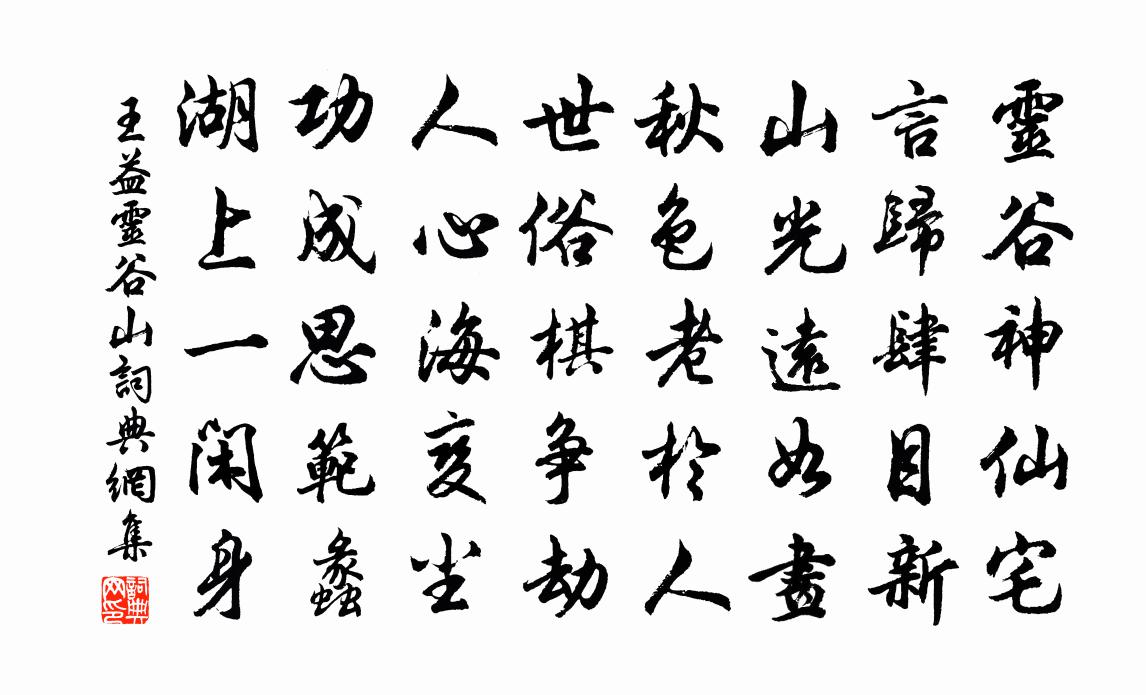 靈谷神仙宅
言歸肆目新
山光遠如畫
秋色老於人
世俗棋争劫
人心海变尘
功成思範蠡
湖上一閑身
王益靈谷山詞典網集
詞典网印